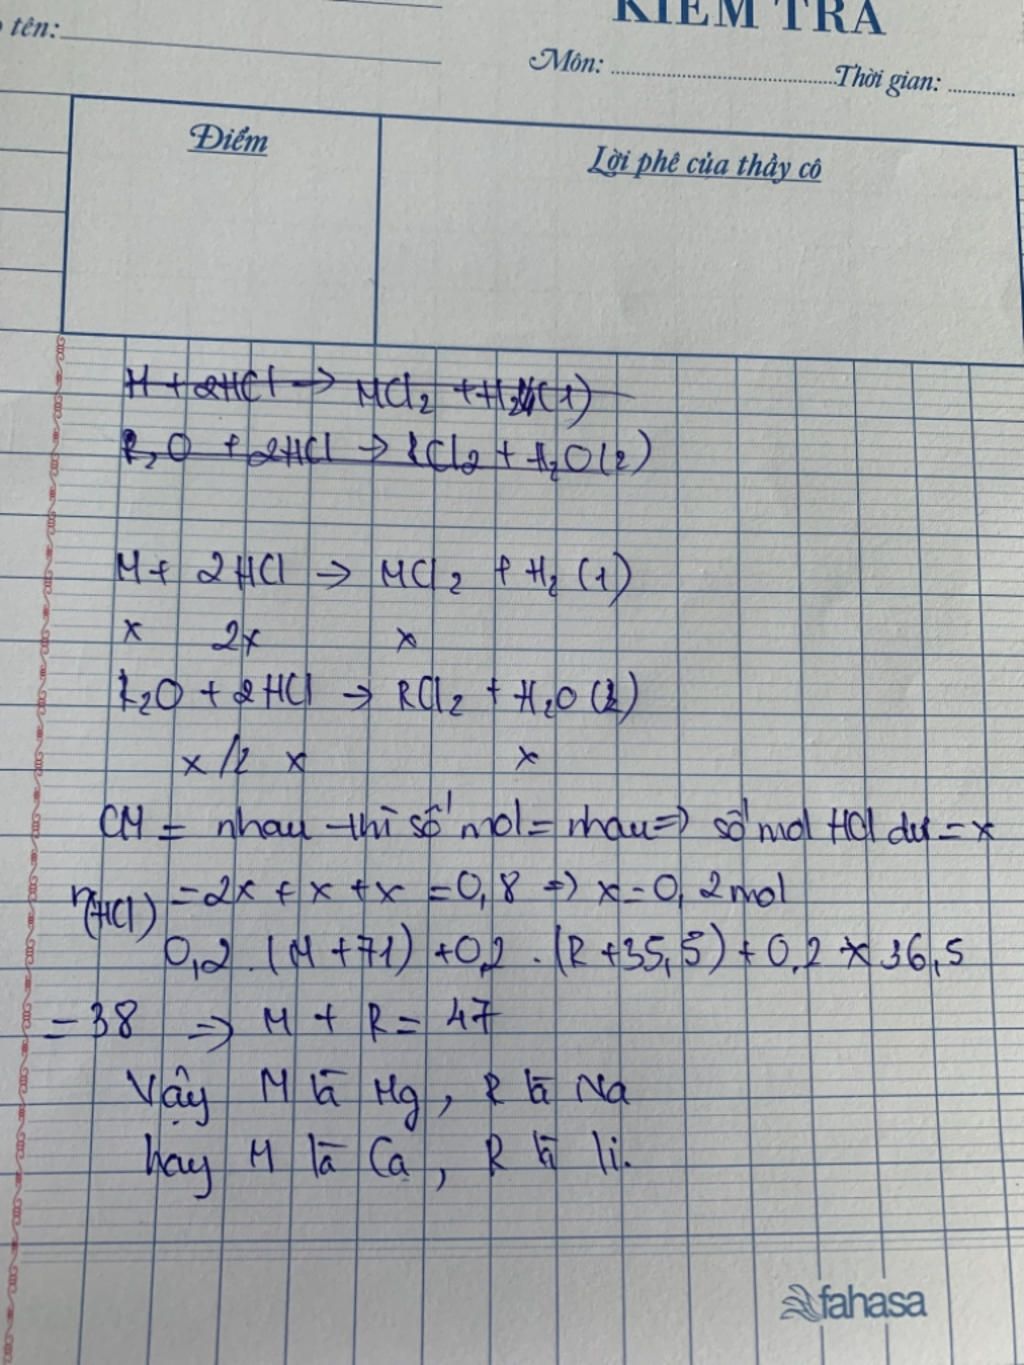 tên:
KIỂM TRA
Môn: Thời gian:
Điểm
Lời phê của thầy cô
M + 2HCl → MCl2 + H2 (1)
R2O + 2HCl → RCl2 + H2O (2)
M + 2HCl → MCl2 + H2 (1)
x 2x x
R2O + 2HCl → RCl2 + H2O (2)
x/2 x x
CM = nhau thì số mol = nhau => số mol HCl dư = x
n(HCl) = 2x + x + x = 0,8 => x = 0,2 mol
0,2 . (M + 71) + 0,2 . (R + 35,5) + 0,2 x 36,5
= 38 => M + R = 47
Vậy M là Mg, R là Na
hay M là Ca, R là li.
fahasa